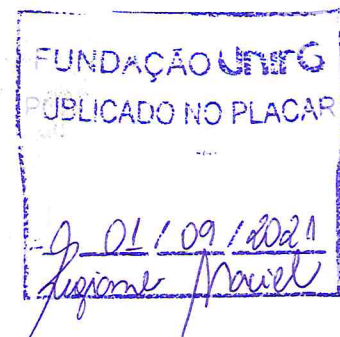 FUNDAÇÃO UnirG
PUBLICADO NO PLACAR
01/09/2021
Maciel